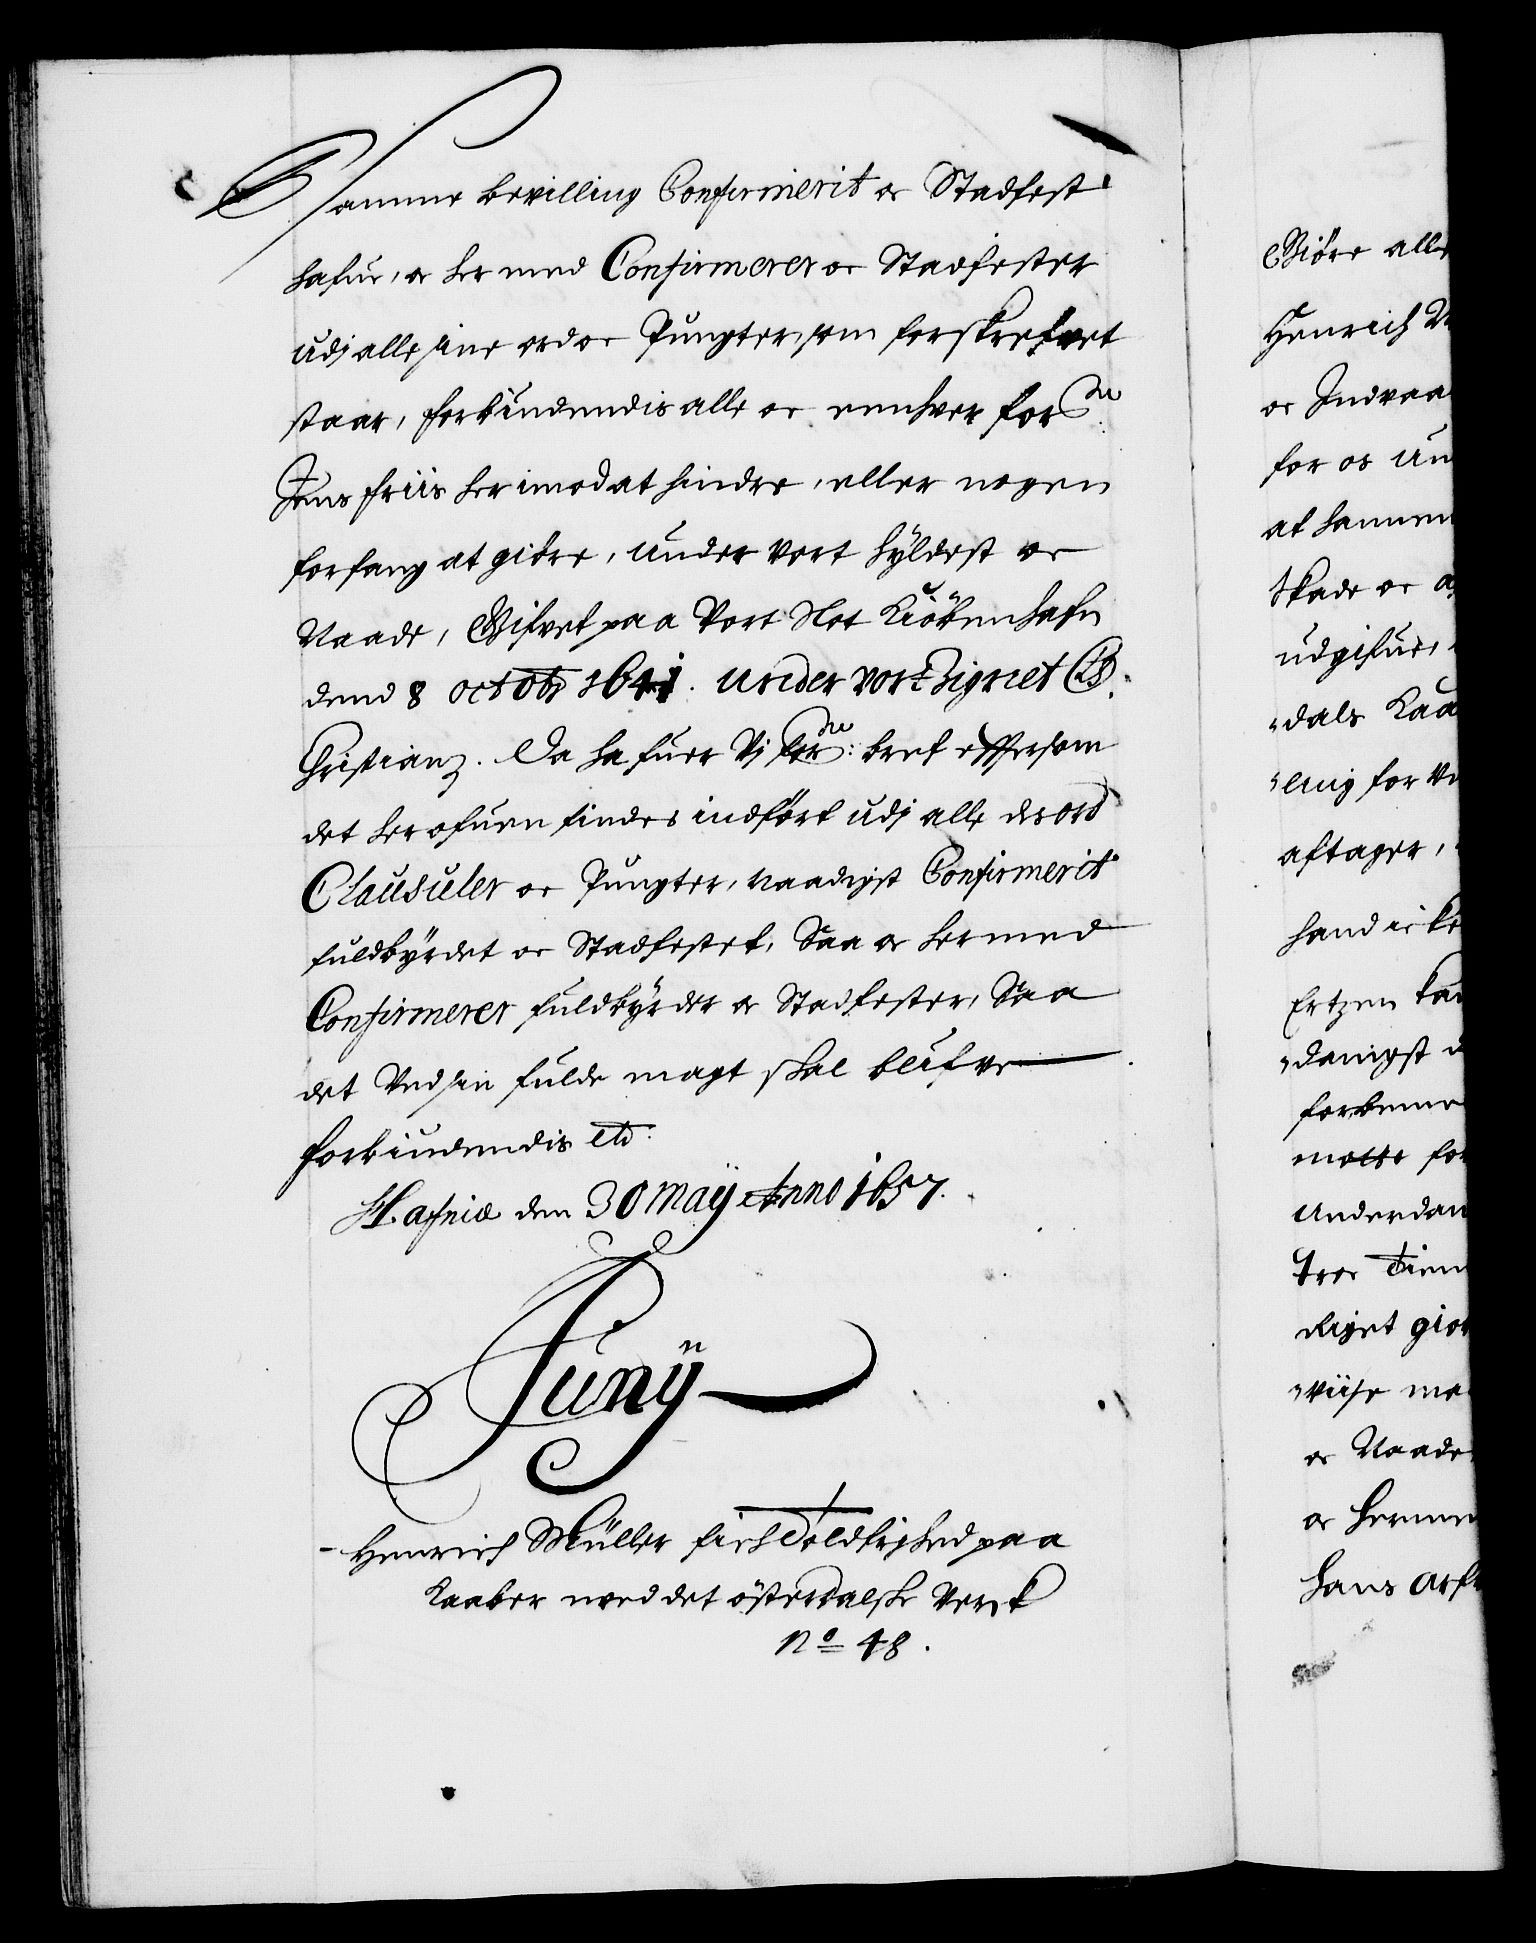 Samme bevilling Confirmerit oc Stadfest
hafue, oc her med Confirmerer oc Stadfester
udj alle sine ord oc Puncter, som forskrefvet
staar, forbiudendis alle oc eenhver for:ne
Jens Friis her imod at hindre, eller nogen
forfang at giöre, under vort hyldest oc
Naade, Gifvet paa Vort Slot Kiöbenhafn
dend 8 octobr 1641. under vort Signet
Christian. Da hafuer Vj for:ne: bref eftersom
det her ofuen findes indfört udj alle des ord
Clausuler oc Puncter, naadigst Confirmerit
fuldbyrdet oc Stadfestet, Saa oc her med
Confirmerer fuldbyrder oc Stadfester, Saa
det Ved sin fulde magt skal blifve
forbiudendis etc:
Hafniæ den 30 Maij Anno 1657.
Junij
Henrich Müller fich Toldfrihed paa
Kaaber med det österdalske Verck
No 48.
Giöre alle
Henrich M
oc Indvaa
for os un
at hannem
Skade oc
udgifue,
dals Kaa
ling for
aftager,
hand icke
Ertzen kan
danigst
forbeme
motte for
Underdan
Troe Tien
Riget gior
viise me
oc Naade
oc herme
hans arf